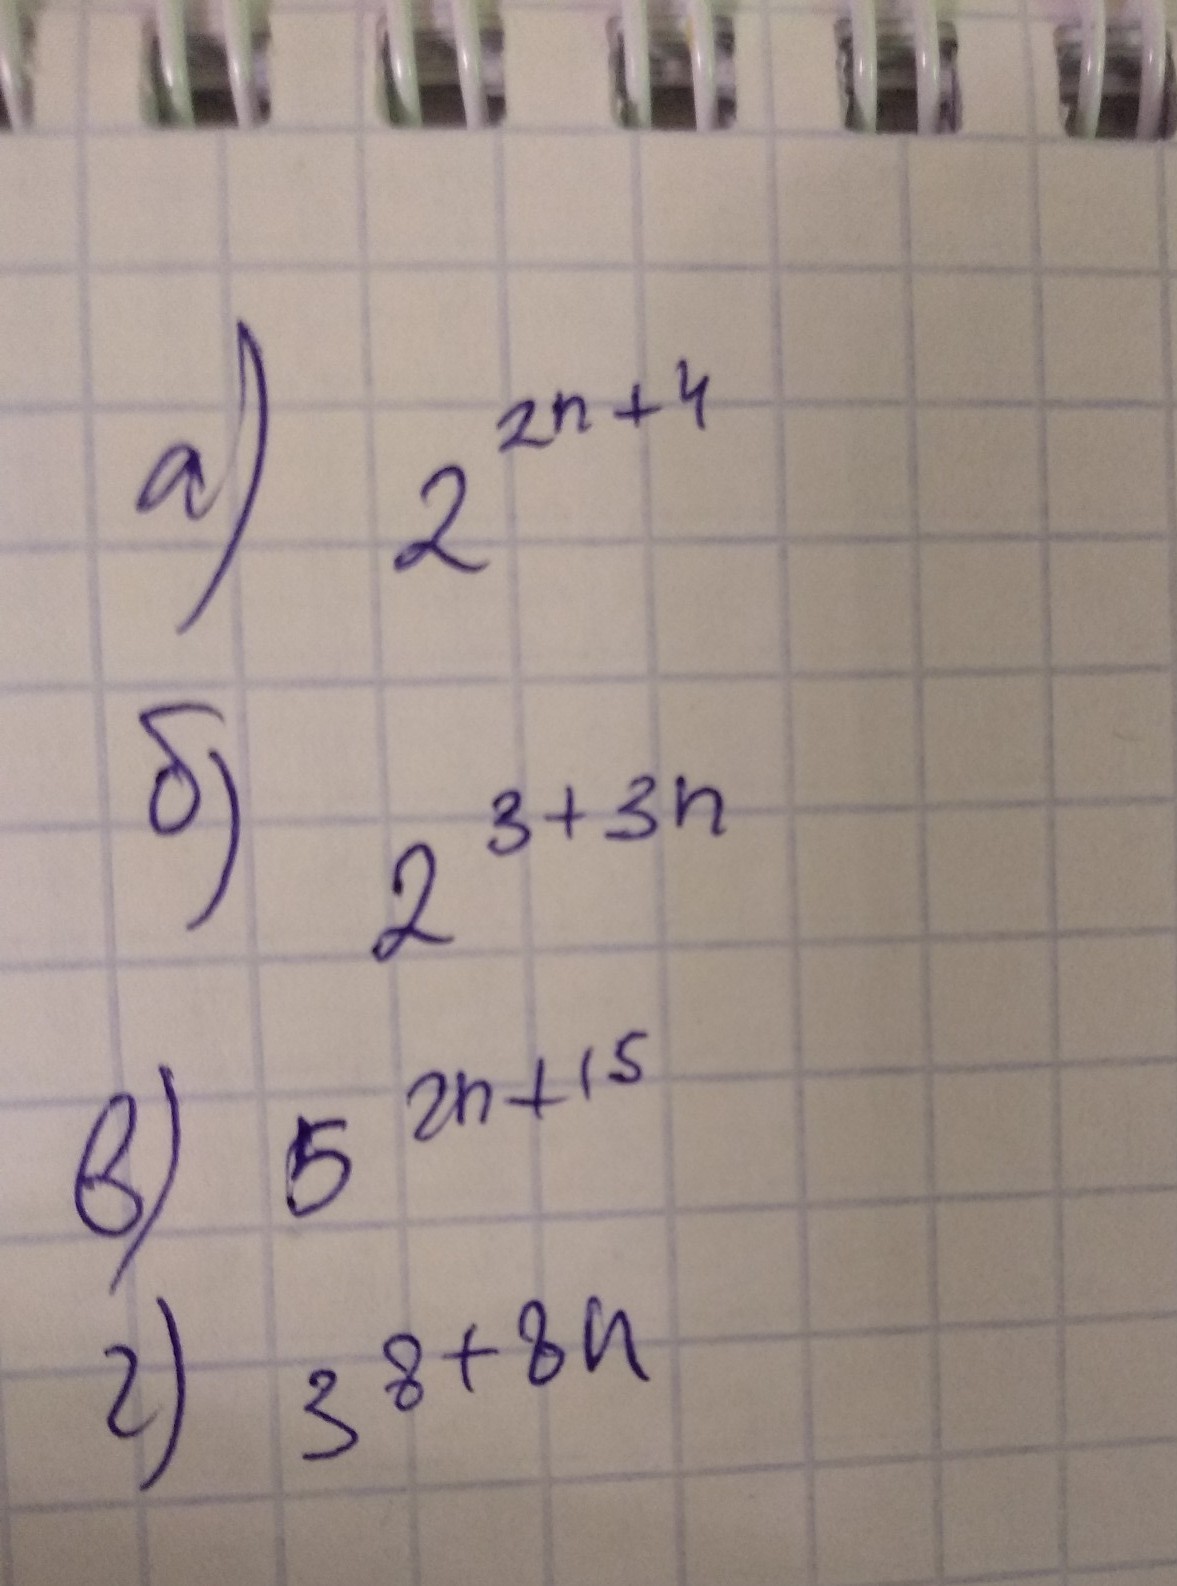 а) 2^{2n+4}
б) 2^{3+3n}
в) 5^{2n+15}
г) 3^{8+8n}